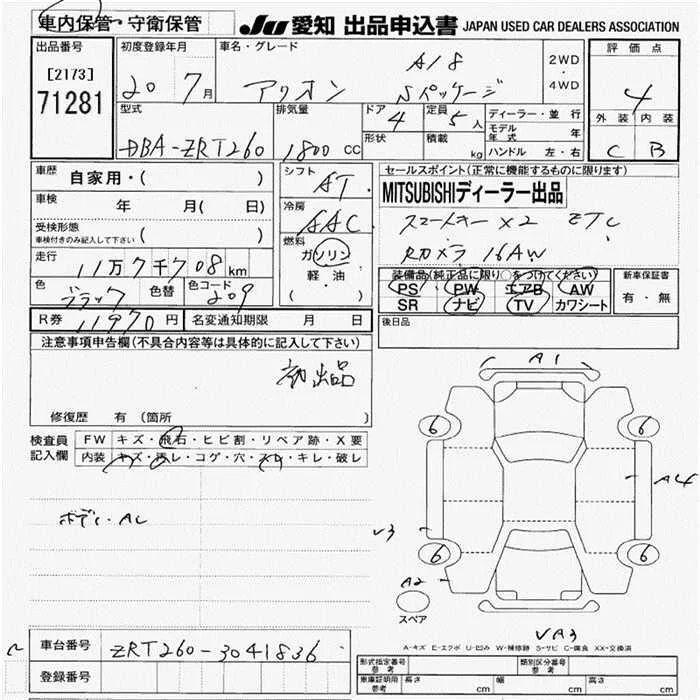 車内保管・守衛保管
JU 愛知 出品申込書 JAPAN USED CAR DEALERS ASSOCIATION
出品番号
[2173]
71281
初度登録年月
20 7月
車名・グレード
アリオン A18 Sパッケージ
2WD
・
4WD
評価点
4
外装 内装
C B
型式
DBA-ZRT260
排気量
1800 CC
ドア
4
形状
定員
5人
積載
kg
ディーラー・並行
モデル年式 年
ハンドル 左・右
車歴 自家用・( )
車検 年 月( 日)
受検形態
車検付きのみ記入して下さい ( )
走行 11万7千708km
色 ブラック 色替 色コード 209
R券 11970円 名変通知期限 月 日
シフト
AT
冷房
AAC
燃料
ガソリン
軽油
( ・ )
セールスポイント(正常に機能するものに限ります)
MITSUBISHIディーラー出品
スマートキー×2 ETC
Rカメラ 16AW
装備品(純正品に限り○をつけてください)
PS PW エアB AW
SR ナビ TV カワシート
新車保証書
有・無
後日品
注意事項申告欄(不具合内容等は具体的に記入して下さい)
初出品
修復歴 有(箇所 )
検査員記入欄
FW キズ・飛石・ヒビ割・リペア跡・X要
内装 キズ・汚レ・コゲ・穴・スレ・キレ・破レ
ボディ・AC
A1
6 6
A4
V3
6 6
A2
スペア
VA3
A-キズ E-エクボ U-凹み W-補修跡 S-サビ C-腐食 XX-交換済
車台番号 ZRT260-3041836
登録番号
形式指定番号 参考
類別区分番号 参考
車庫証明用 参考 長さ cm 幅 cm 高さ cm